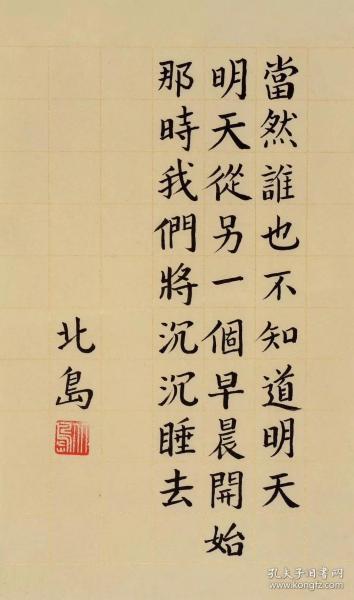 當然誰也不知道明天
明天從另一個早晨開始
那時我們將沉沉睡去
北島
孔夫子旧书网